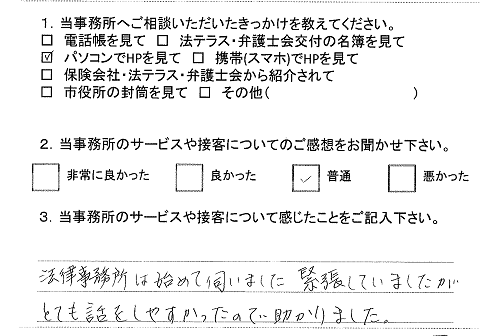 1. 当事務所へご相談いただいたきっかけを教えてください。
□ 電話帳を見て □ 法テラス・弁護士会交付の名簿を見て
☑ パソコンでHPを見て □ 携帯(スマホ)でHPを見て
□ 保険会社・法テラス・弁護士会から紹介されて
□ 市役所の封筒を見て □ その他( )
2. 当事務所のサービスや接客についてのご感想をお聞かせ下さい。
□ 非常に良かった □ 良かった ☑ 普通 □ 悪かった
3. 当事務所のサービスや接客について感じたことをご記入下さい。
法律事務所は始めて伺いました 緊張していましたが
とても話をしやすかったので助かりました。